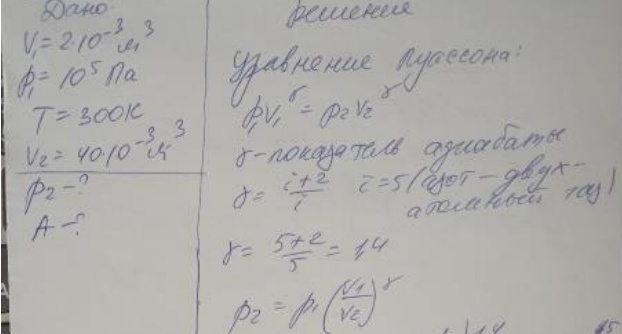 Дано:
V₁ = 2·10⁻³ м³
p₁ = 10⁵ Па
T = 300К
V₂ = 40·10⁻³ м³
p₂ - ?
A - ?
решение
Уравнение Пуассона:
p₁V₁^γ = p₂V₂^γ
γ - показатель адиабаты
γ = (i+2)/i i = 5 (азот - двух-
атомный газ)
γ = (5+2)/5 = 1,4
p₂ = p₁ (V₁/V₂)^γ